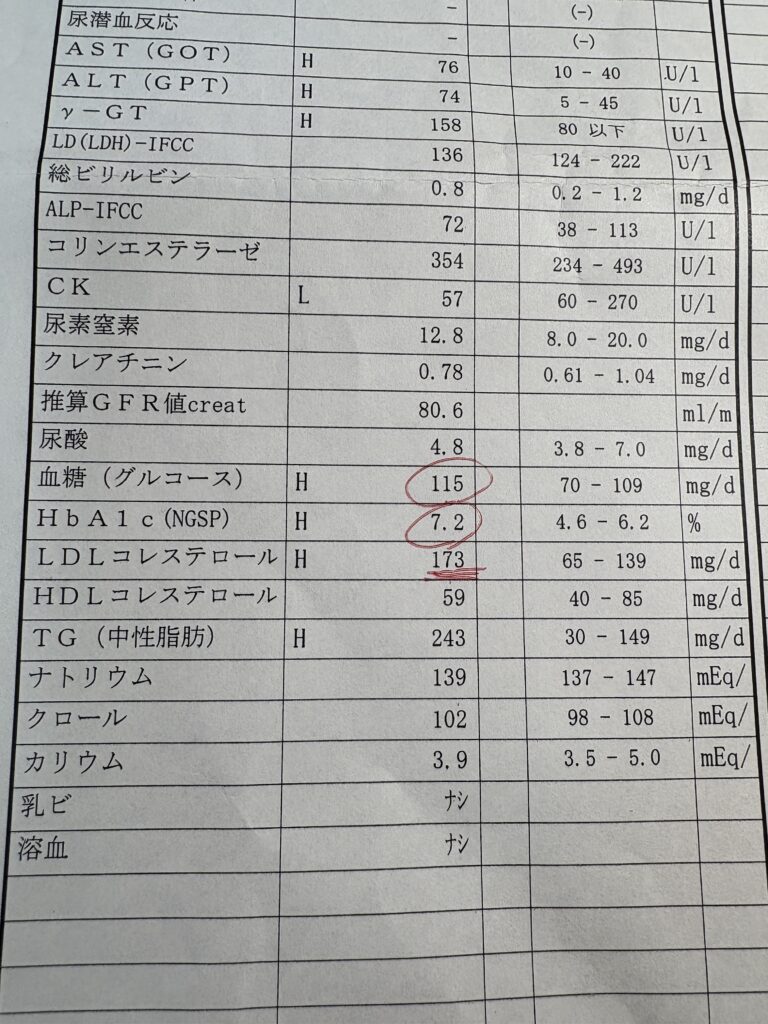 － (－)
尿潜血反応 － (－)
ＡＳＴ（ＧＯＴ） H 76 10 － 40 U/l
ＡＬＴ（ＧＰＴ） H 74 5 － 45 U/l
γ－ＧＴ H 158 80 以下 U/l
LD(LDH)-IFCC 136 124 － 222 U/l
総ビリルビン 0.8 0.2 － 1.2 mg/d
ALP-IFCC 72 38 － 113 U/l
コリンエステラーゼ 354 234 － 493 U/l
ＣＫ L 57 60 － 270 U/l
尿素窒素 12.8 8.0 － 20.0 mg/d
クレアチニン 0.78 0.61 － 1.04 mg/d
推算ＧＦＲ値creat 80.6 ml/m
尿酸 4.8 3.8 － 7.0 mg/d
血糖（グルコース） H 115 70 － 109 mg/d
ＨｂＡ１ｃ(NGSP) H 7.2 4.6 － 6.2 %
ＬＤＬコレステロール H 173 65 － 139 mg/d
ＨＤＬコレステロール 59 40 － 85 mg/d
ＴＧ（中性脂肪） H 243 30 － 149 mg/d
ナトリウム 139 137 － 147 mEq/
クロール 102 98 － 108 mEq/
カリウム 3.9 3.5 － 5.0 mEq/
乳ビ ﾅｼ
溶血 ﾅｼ